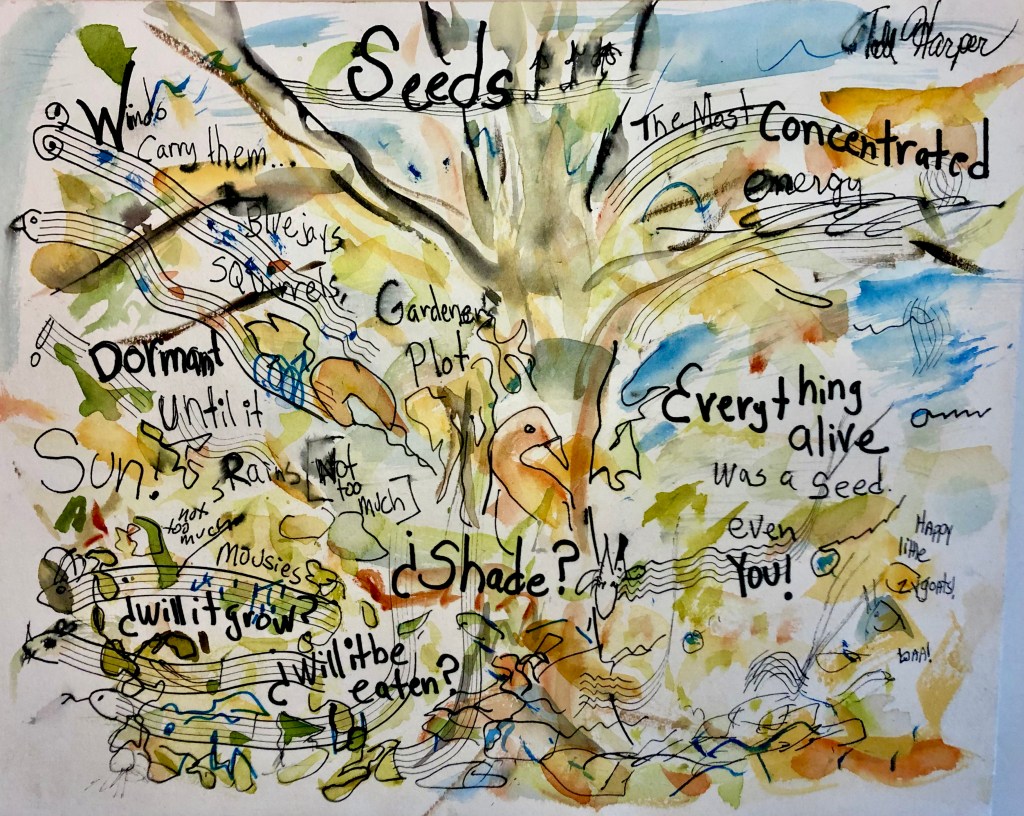 Seeds
Harper
Winds
Carry them...
The Most Concentrated
energy
Bluejays
SQuirrels,
Gardener's
Plot
Dormant
until it
Sun!
Rains [Not
too
much]
not
too
much
Mousies
Everything
alive
was a seed.
even
You!
Happy
little
zygoats!
waa!
¿Shade?
¿will it grow?
¿Will it be
eaten?